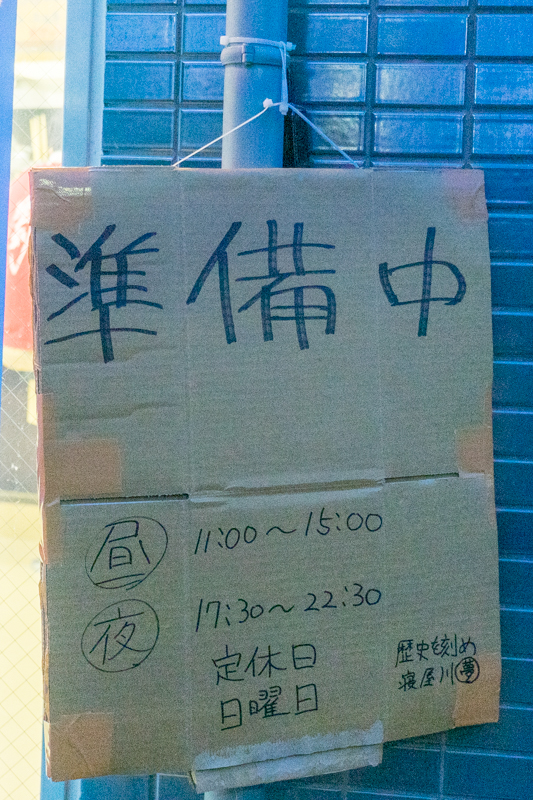 準備中
昼 11:00～15:00
夜 17:30～22:30
定休日
日曜日
歴史を刻め
寝屋川夢